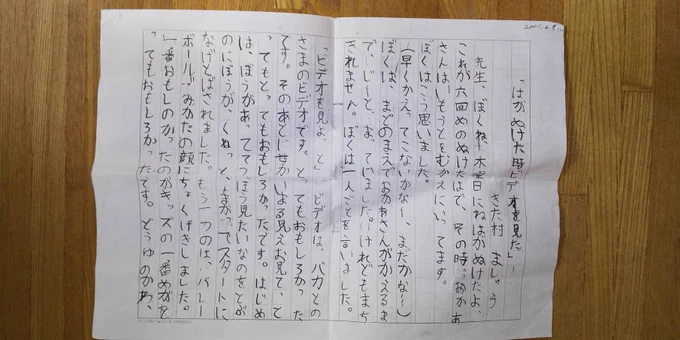 「はがぬけた時ビデオを見た」
きた村 ましゅう
先生、ぼくね、木曜日にねはがぬけたよ、
これが六回めのぬけたはで、その時、おかあ
さんはいもうとをむかえにいってます。
ぼくはこう思いました。
(早くかえってこないかな〜、まだかな〜)
ぼくは、まどのまえでおかあさんがかえるま
で、じーと、まってました。けれどもまち
きれません。ぼくは一人ごとを言いました。
「ビデオを見よっと」ビデオは、バカとの
さまのビデオです。とってもおもしろかった
です。そのあとにせかいまる見えお見て、と
ってもとってもおもしろかったです。はじめ
は、ぼうがあっててつぼう見たいなのをとぶ
のにぼうが、くねっと、まがってスタートに
なげとばされました。もう一つのは、バレー
ボールでみかたの顔にちょくげきしました。
一番おもしのかったのがキッズの一番めがと
ってもおもしろかったです。どうゆのかわ、